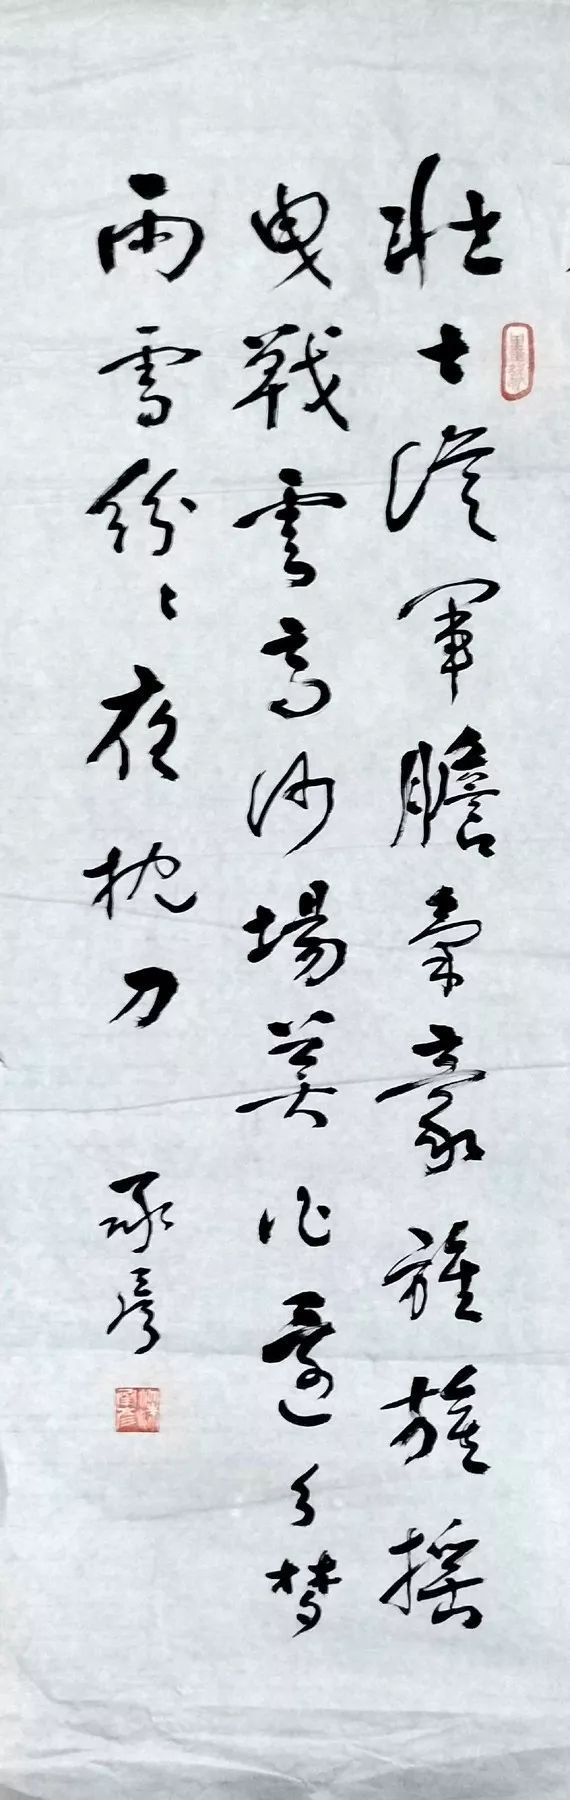 壯士從軍膽氣豪旌旗搖
曳戰雲高沙場莫作還鄉夢
雨雪紛々夜枕刀
承彥